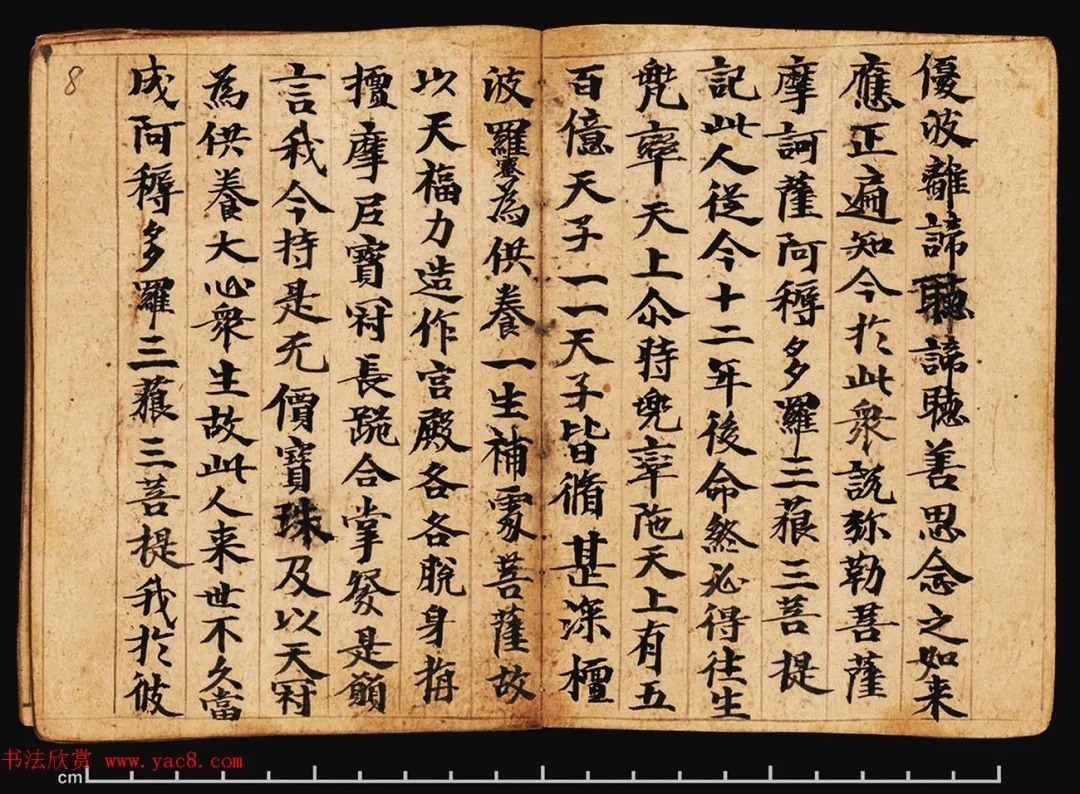 優波離諦聽諦聽善思念之如来
應正遍知今扵此衆説弥勒菩薩
摩訶薩阿耨多羅三藐三菩提
記此人従今十二年後命終必得往生
兜率天上尒時兜率陁天上有五
百億天子一一天子皆脩甚深檀
波羅蜜為供養一生補處菩薩故
以天福力造作宫殿各各脫身栴
檀摩尼寳冠長跪合掌發是願
言我今持是无價寳珠及以天冠
為供養大心衆生故此人来世不久當
成阿耨多羅三藐三菩提我扵彼
8
书法欣赏 www.yac8.com
cm